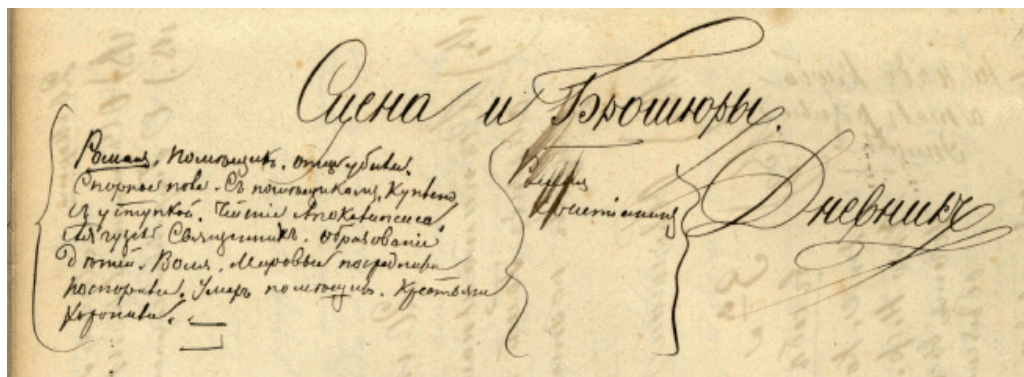 Сцена и Брошюры.
Романъ. Помѣщикъ. отцеубивш.
Спорное поле. Съ помѣщикомъ. Куплено
съ уступкой. Чтеніе Апокалипсиса
Священникъ. образованіе
дѣтей. Воля. Мировые посредники
поспорили. Умеръ помѣщикъ. Крестьяне
хоронили.
Романъ
Христіанинъ
Дневникъ